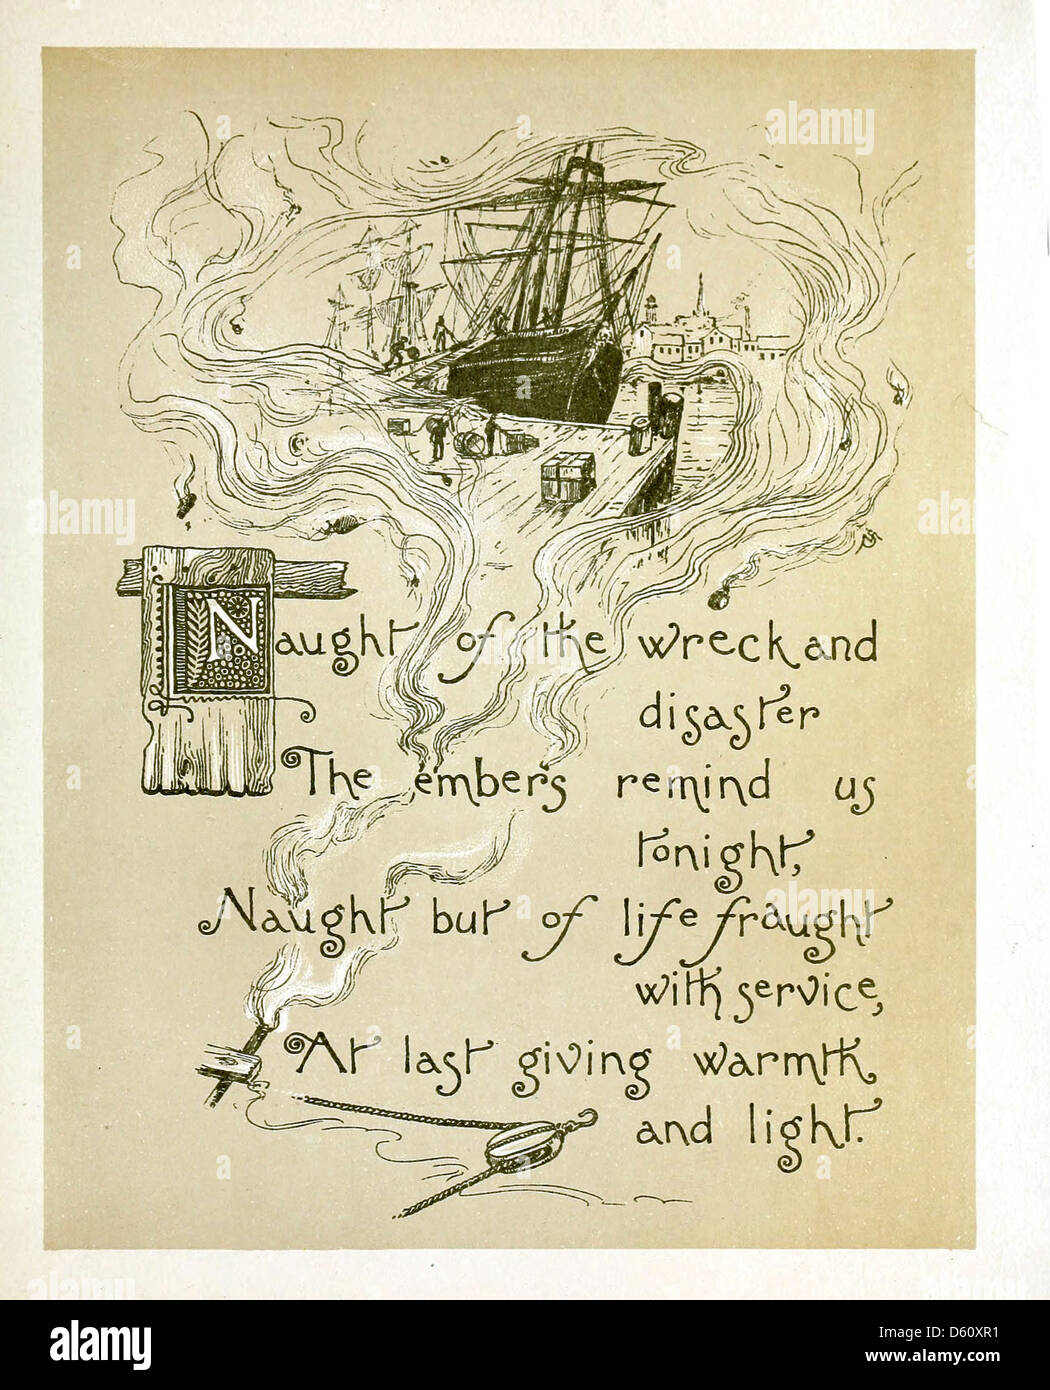 Naught of the wreck and
disaster
The embers remind us
tonight,
Naught but of life fraught
with service,
At last giving warmth
and light.
alamy
Image ID: D60XR1
www.alamy.com